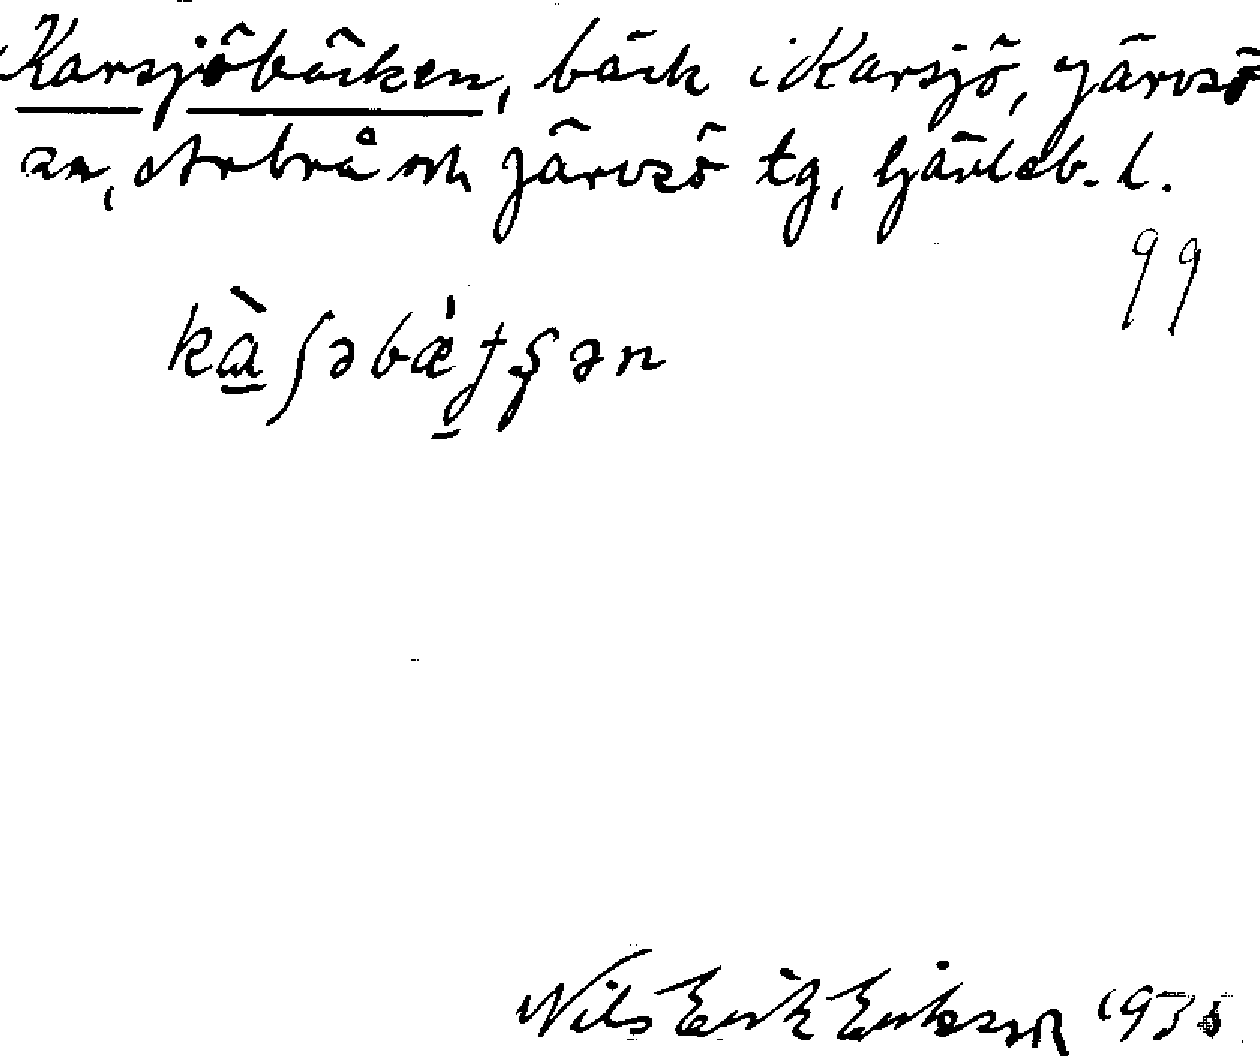 Karsjöbäcken, bäck i Karsjö, Järvsö
sn, Arbrå och Järvsö tg, Gävleb. l.
99
Nils Erik Eriksson 1935